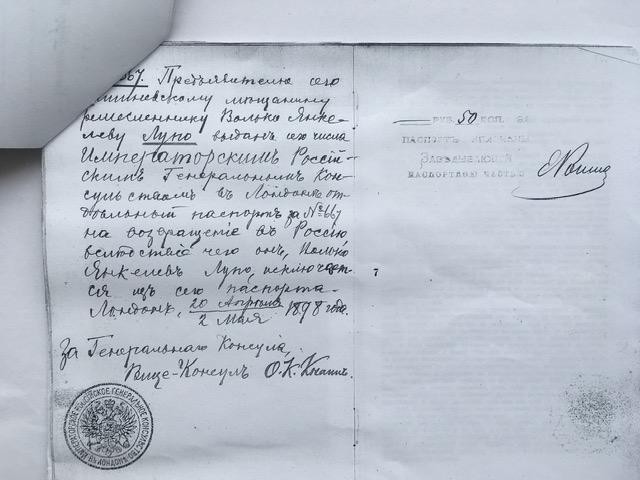 667. Предъявителю сего
мѣщанину
ремесленнику Волько Янке-
леву Лупо выданъ сего числа
Императорскимъ Россій-
скимъ Генеральнымъ Кон-
сульствомъ въ Лондонѣ от-
дѣльный паспортъ за № 667
на возвращеніе въ Россію
вслѣдствіе чего онъ, Волько
Янкелевъ Лупо, исключает-
ся изъ сего паспорта.
Лондонъ, 20 Апрѣля
2 Мая 1898 года.
За Генеральнаго Консула,
Вице-Консулъ О.К.
ИМПЕРАТОРСКОЕ РОССІЙСКОЕ ГЕНЕРАЛЬНОЕ КОНСУЛЬСТВО ВЪ ЛОНДОНѢ
— РУБ. 50 КОП. ЗА
ПАСПОРТЪ
ЗАВѢДЫВАЮЩІЙ
ПАСПОРТНОЮ ЧАСТЬЮ
7